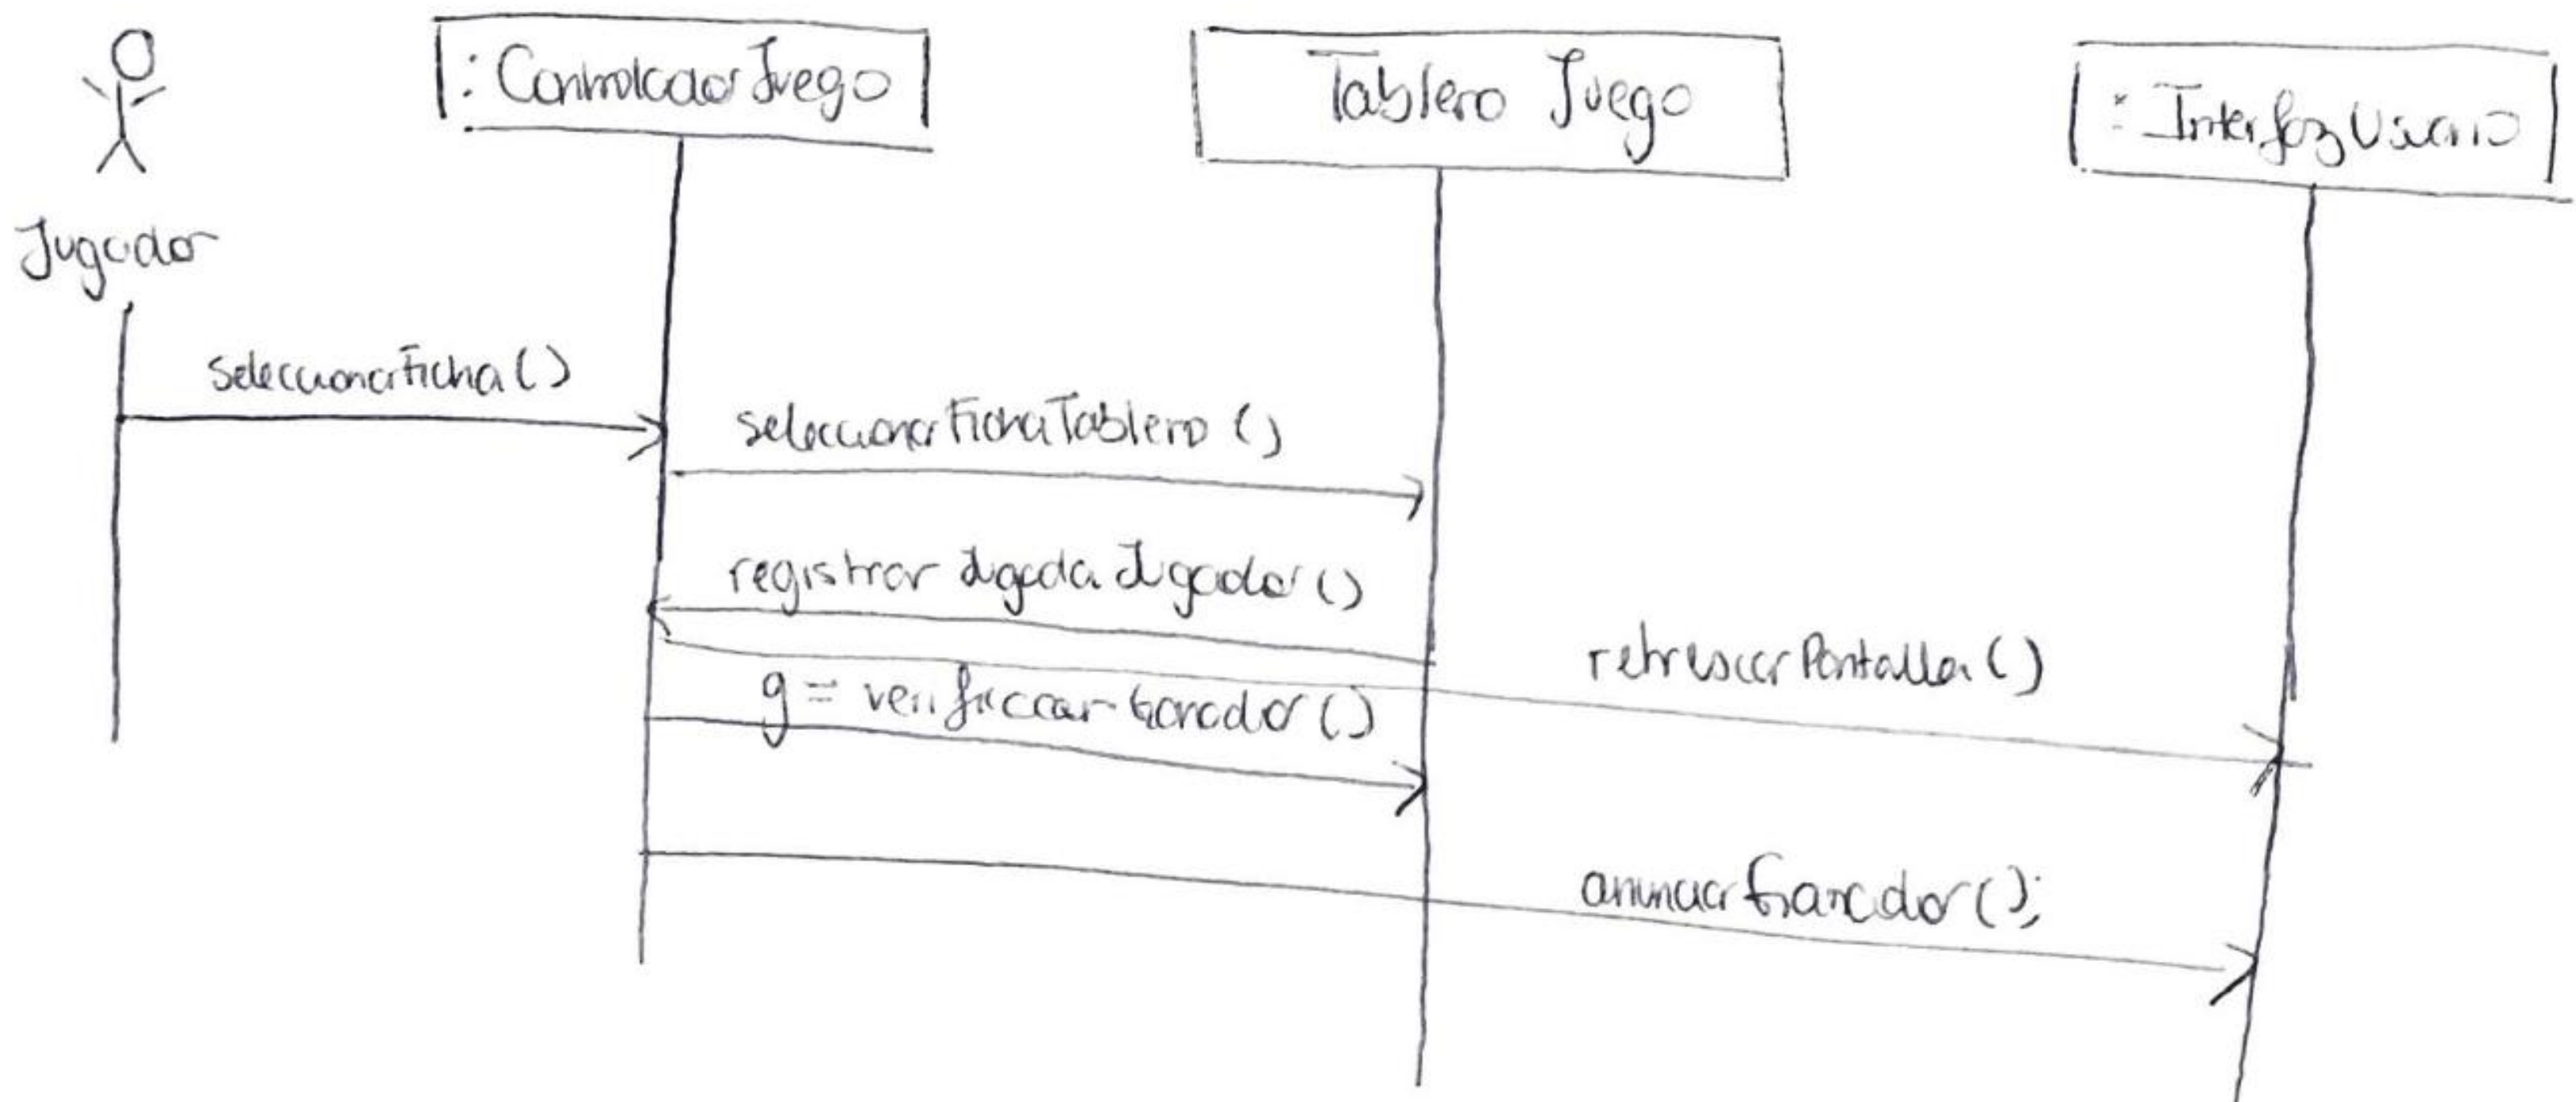 : ControladorJuego
Tablero Juego
: InterfazUsuario
Jugador
seleccionarFicha()
seleccionarFichaTablero ()
registrar Jugada Jugador ()
refrescarPantalla ()
g = verificarGanador ()
anunciarGanador ();